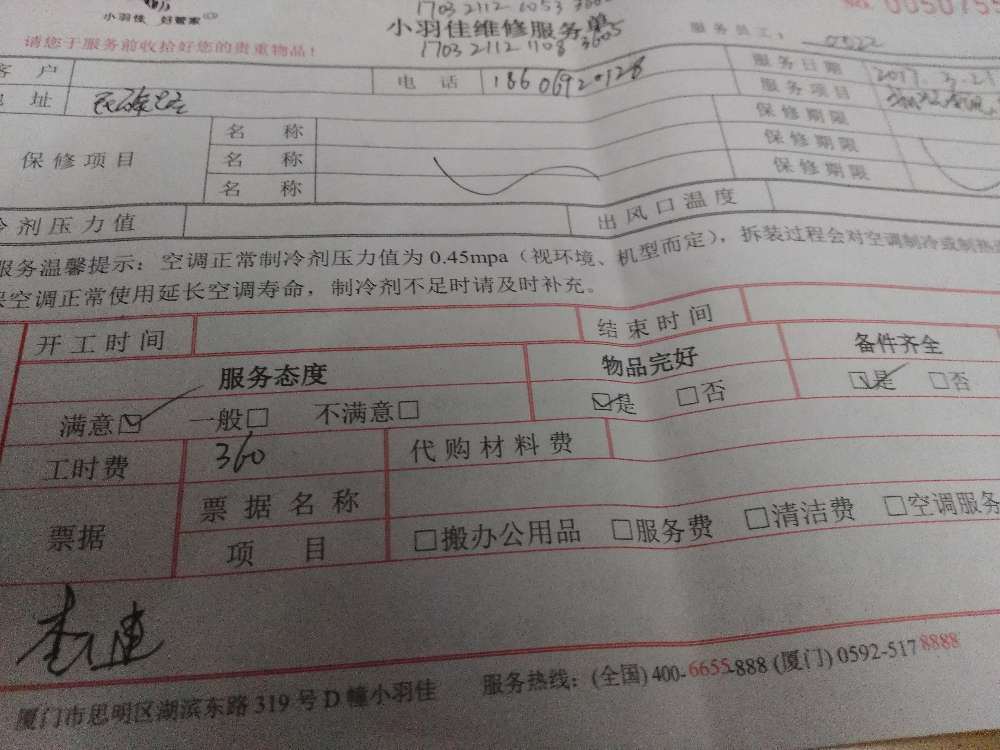 1703 2112 6053 3605
小羽佳 好管家
小羽佳维修服务单
No. 0050755
请您于服务前收拾好您的贵重物品！
1703 2112 1108
服务员工：
客 户
电 话
服务日期 2017. 3. 21
地 址
服务项目
保修项目
名 称
保修期限
名 称
保修期限
名 称
保修期限
冷剂压力值
出风口温度
服务温馨提示：空调正常制冷剂压力值为 0.45mpa（视环境、机型而定），拆装过程会对空调制冷或制热
保空调正常使用延长空调寿命，制冷剂不足时请及时补充。
开工时间
结束时间
服务态度
物品完好
备件齐全
满意☑ 一般□ 不满意□
☑是 □否
☑是 □否
工时费 360
代购材料费
票据
票据名称
项 目
□搬办公用品 □服务费 □清洁费 □空调服务
厦门市思明区湖滨东路 319 号 D 幢小羽佳
服务热线：(全国) 400-6655-888 (厦门) 0592-5178888